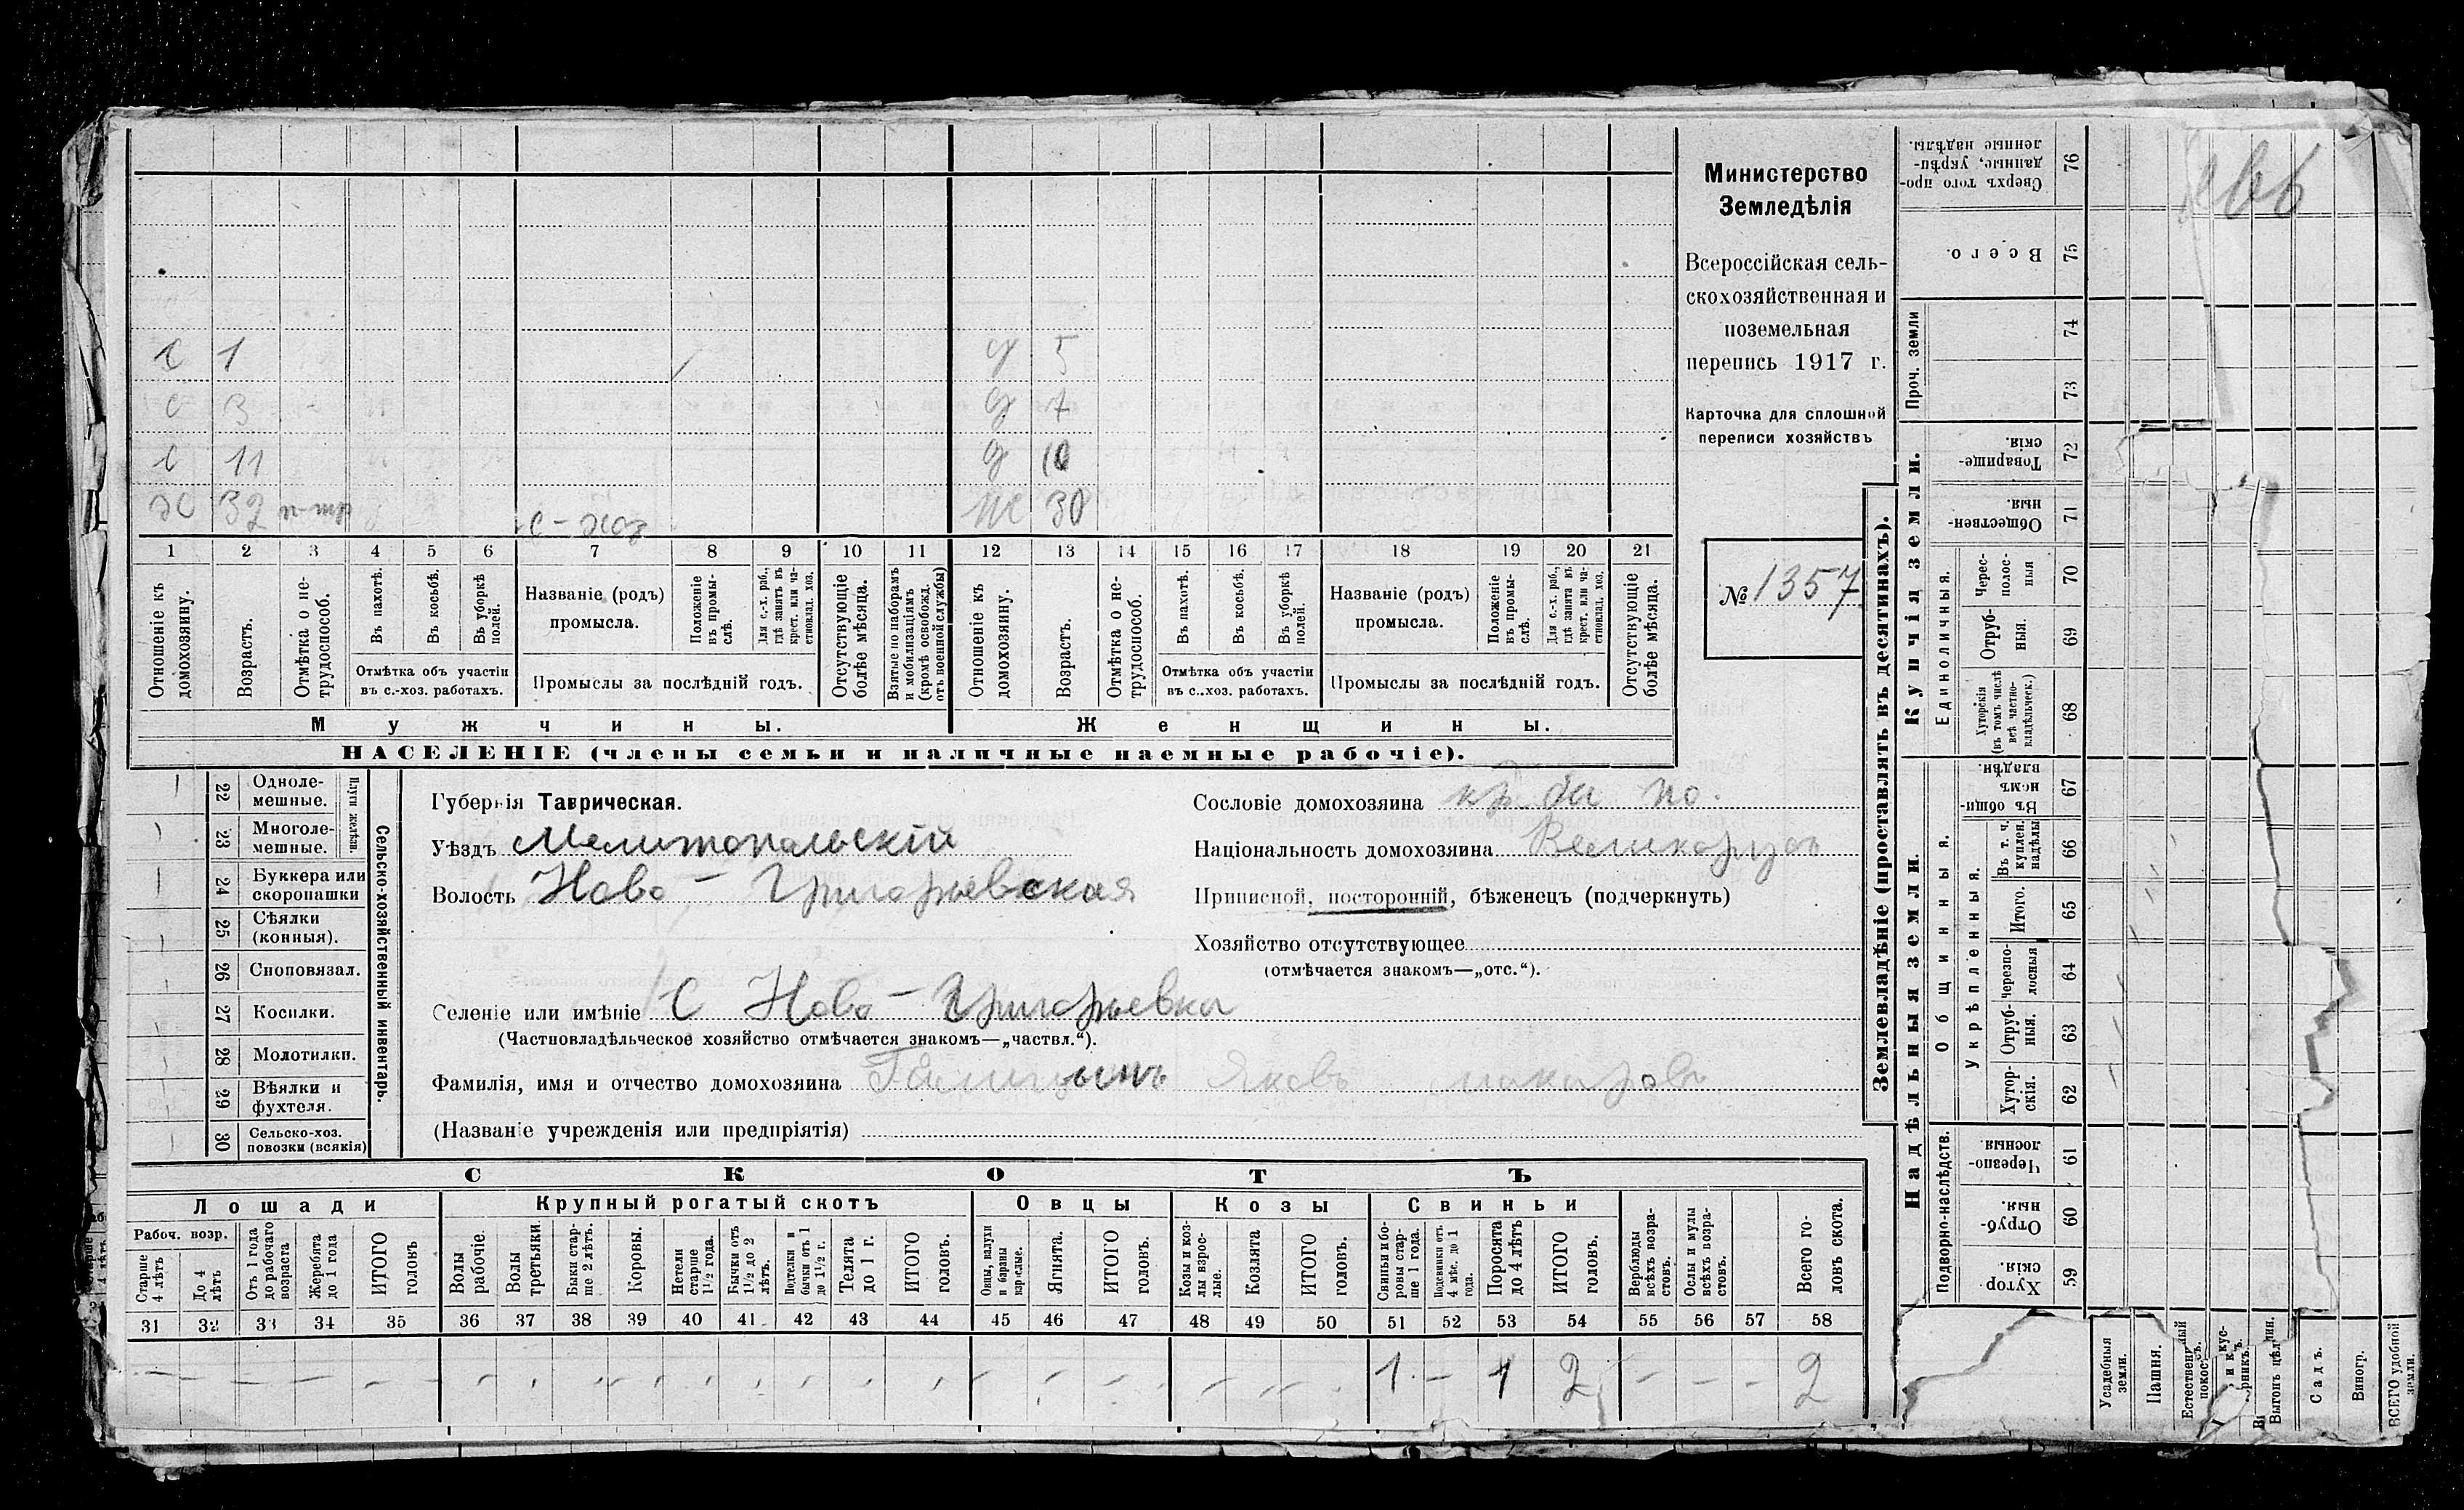 Министерство
Земледѣлія
Всероссійская сель-
скохозяйственная и
поземельная
перепись 1917 г.
Карточка для сплошной
переписи хозяйствъ
№ 1357
С 1
С 3
С 11
32
с-хоз
д 5
д 7
д 10
30
1 2 3 4 5 6 7 8 9 10 11 12 13 14 15 16 17 18 19 20 21
Отношеніе къ домохозяину.
Возрастъ.
Отмѣтка о не-трудоспособ.
Въ пахотѣ.
Въ косьбѣ.
Въ уборкѣ полей.
Отмѣтка объ участіи
въ с.-хоз. работахъ.
Названіе (родъ)
промысла.
Положеніе въ промы-слѣ.
Для с.-х. раб., гдѣ занятъ въ крест. или ча-стновлад. хоз.
Промыслы за послѣдній годъ.
Отсутствующіе болѣе мѣсяца.
Взятые по наборамъ и мобилизаціямъ (кромѣ освобожд. отъ военной службы)
Отношеніе къ домохозяину.
Возрастъ.
Отмѣтка о не-трудоспособ.
Въ пахотѣ.
Въ косьбѣ.
Въ уборкѣ полей.
Отмѣтка объ участіи
въ с.-хоз. работахъ.
Названіе (родъ)
промысла.
Положеніе въ промы-слѣ.
Для с.-х. раб., гдѣ занята въ крест. или ча-стновлад. хоз.
Промыслы за послѣдній годъ.
Отсутствующіе болѣе мѣсяца.
Мужчины.
Женщины.
НАСЕЛЕНІЕ (члены семьи и наличные наемные рабочіе).
Сельско-хозяйственный инвентарь.
Плуги желѣзн.
22 Одноле-мешные.
23 Многоле-мешные.
24 Буккера или скоропашки
25 Сѣялки (конныя).
26 Сноповязал.
27 Косилки.
28 Молотилки.
29 Вѣялки и фухтеля.
30 Сельско-хоз. повозки (всякія)
Губернія Таврическая.
Уѣздъ Мелитопольскій
Волость Ново-Григорьевская
Сословіе домохозяина кр.
Національность домохозяина Великорусъ
Приписной, посторонній, бѣженецъ (подчеркнуть)
Хозяйство отсутствующее
(отмѣчается знакомъ—„отс.“).
Селеніе или имѣніе С Ново-Григорьевка
(Частновладѣльческое хозяйство отмѣчается знакомъ—„частвл.“).
Фамилія, имя и отчество домохозяина Голицынъ Яковъ Макаровъ
(Названіе учрежденія или предпріятія)
СКОТЪ
Лошади
Крупный рогатый скотъ
Овцы
Козы
Свиньи
Рабоч. возр.
Старше 4 лѣтъ
До 4 лѣтъ
Отъ 1 года до рабочаго возраста
Жеребята до 1 года
ИТОГО головъ
Волы рабочіе.
Волы третьяки.
Быки стар-ше 2 лѣтъ.
Коровы.
Нетели старше 1½ года.
Бычки отъ 1½ до 2 лѣтъ.
Подтелки и бычки отъ 1 до 1½ г.
Телята до 1 г.
ИТОГО головъ.
Овцы, валухи и бараны взрослые.
Ягнята.
ИТОГО головъ.
Козы и коз-лы взрос-лые.
Козлята
ИТОГО головъ.
Свиньи и бо-ровы стар-ше 1 года.
Подсвинки отъ 4 мѣс. до 1 года.
Поросята до 4 лѣтъ
ИТОГО головъ.
Верблюды всѣхъ возра-стовъ.
Ослы и мулы всѣхъ возра-стовъ.
Всего го-ловъ скота.
31 32 33 34 35 36 37 38 39 40 41 42 43 44 45 46 47 48 49 50 51 52 53 54 55 56 57 58
1 - 1 2 - - - 2
Землевладѣніе (проставлять въ десятинахъ).
Купчія земли.
Надѣльныя земли.
Сверхъ того про-данные, укрѣп-ленные надѣлы. 76
Всего. 75
Проч. земли 74
73
Товарище-скія. 72
Обществен-ныя. 71
Единоличныя.
Черес-полос-ныя 70
Отруб-ныя. 69
Хуторскія (въ томъ числѣ всѣ частно-владѣльческ.) 68
Общинныя.
Въ общи-номъ владѣн. 67
Укрѣпленныя.
Въ т. ч. куплен. надѣлы 66
Итого. 65
черезпо-лосныя 64
Отруб-ныя. 63
Хутор-скія. 62
Подворно-наслѣдств.
Черезпо-лосныя. 61
Отруб-ныя. 60
Хутор-скія. 59
Усадебныя земли.
Пашня.
Выгонъ цѣлин.
Садъ.
Виногр.
ВСЕГО удобной земли.